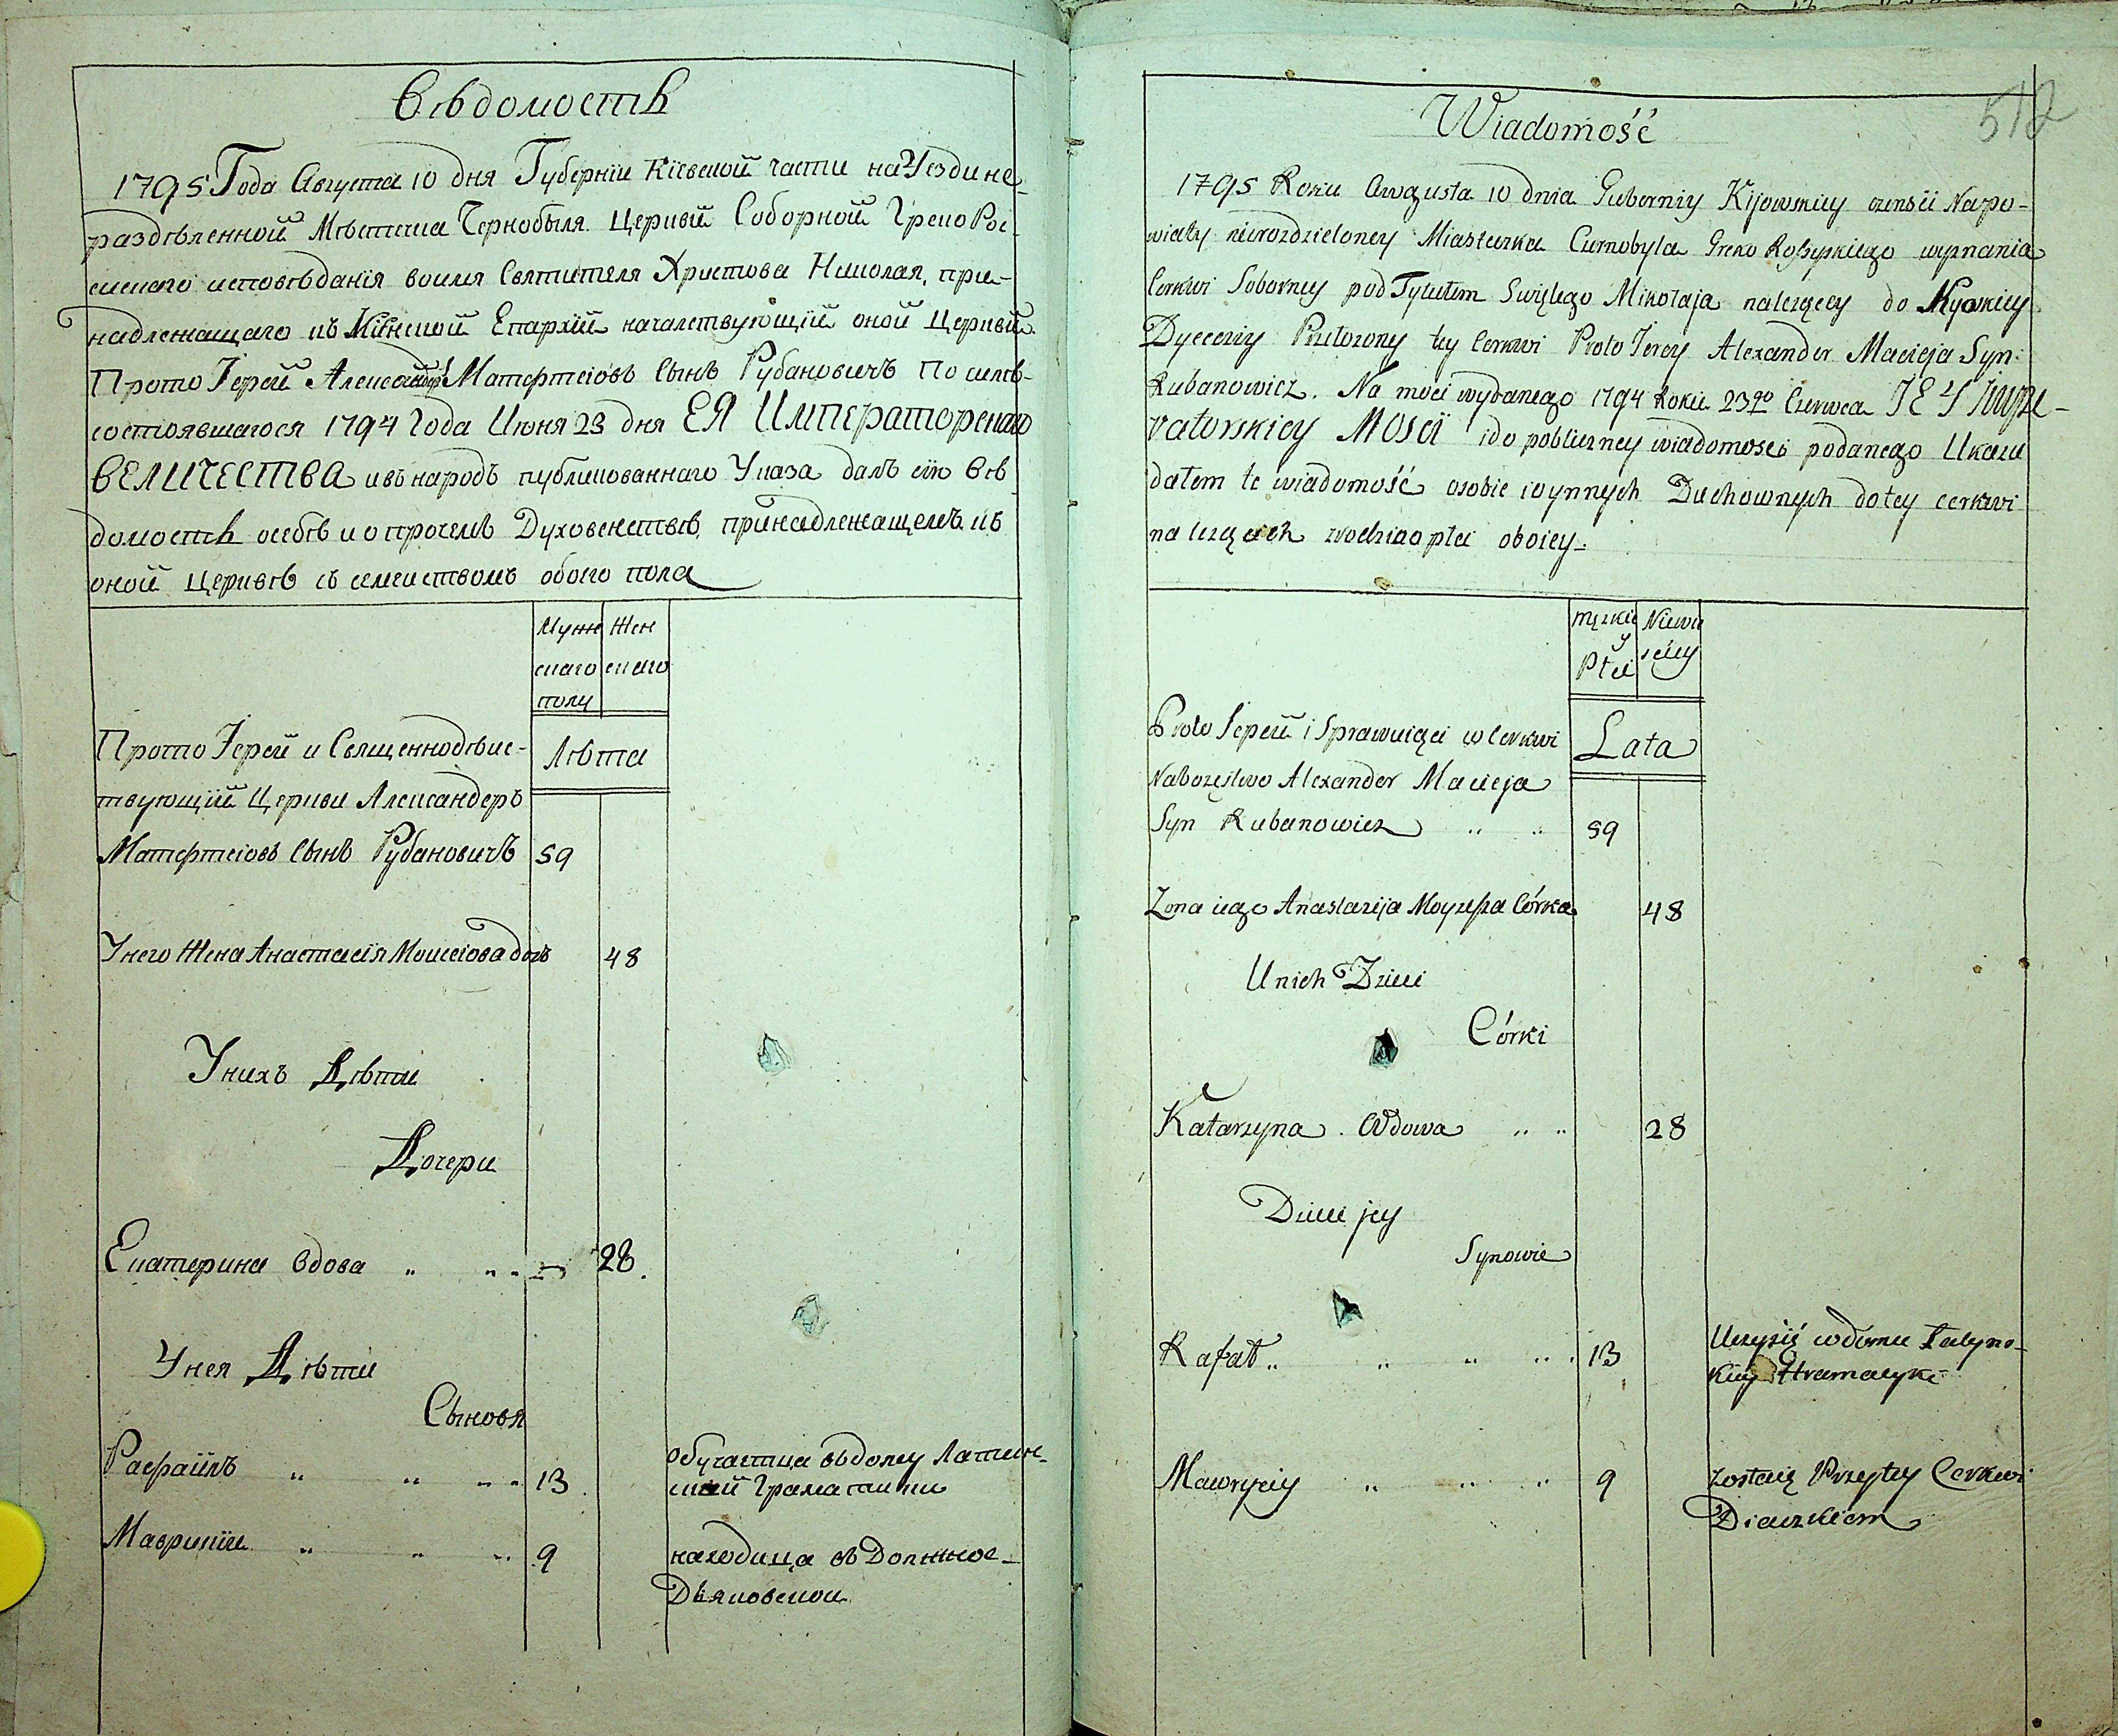 Вѣдомость
1795 Года Августа 10 дня Губернïи Кïевской части на Уездине
раздѣленной Мѣстечка Чернобыля Церквй Соборной Греко Рос-
сискаго исповѣданïя воимя Святителя Христова Николая, при-
надлежащаго къ Епархïй началствующïй оной Церквй
Прото Їерей Александеръ Матфтеïовъ Сынъ Рубановичъ По силѣ
состоявшагося 1794 Года Июня 23 дня ЕЯ Императорскаго
ВЕЛИЧЕСТВА ивъ народъ публикованнаго Указа далъ сïю Вѣ
домость осебѣ и о прочемъ Духовенствѣ, принадлежащемъ къ
оной Церквѣ съ семействомъ обоего пола
Мужескаго полу
Женскаго
Прото Їерей и Священнодѣйс-
Лѣта
твующïй Церкви Александеръ
Матфтеïовъ Сынъ Рубановичъ 59
Унего Жена Анастасïя Моисеïова дочь 48
Унихъ Дѣти
Дочери
Екатерина Вдова „ „ „ 28.
Унея Дѣти
Сыновя
Рафаилъ „ „ „ „ 13 обучаетца въдому Латин-
ской Граматики
Маврикïй „ „ „ 9 находитца въ Должнос-
Дьяковской
512
Wiadomość
1795 Roku Augusta 10 dnia Guberniy Kijowskiey części Napo-
wiaty nierozdzieloney Miasteczka Czernobyla Greko Rossyskiego wyznania
Cerkwi Soborney pod Tytułem Swiętego Mikołaja należącey do
Dyeceziy Przełożony tey Cerkwi Proto Jerey Alexander Macieja Syn
Rubanowicz. Na moci wydanego 1794 Roku 23go Czerwca JEY Impe-
ratorskiey MOSCI ido publiczney wiadomosci podanego Ukazu
dałem te wiadomość osobie i ynnych Duchownych dotey cerkwi
należących zrodzino płci oboiey.
męzkiey Płci
Niewieściey
Proto Їерей i Sprawuiący w Cerkwi
Lata
Nabożęstwo Alexander Macieja
Syn Rubanowicz „ „ 59
Zona iego Anastazija Moyzesza Córka 48
Unich Dzieci
Córki
Katarzyna Wdowa „ „ 28
Dzieci jey
Synowie
Rafał „ „ „ „ 13 Uczysię wdomu Łatyns-
kiey Hramatyki
Mawryciy „ „ „ 9 zostaię Przytey Cerkwi
Diaczkiem